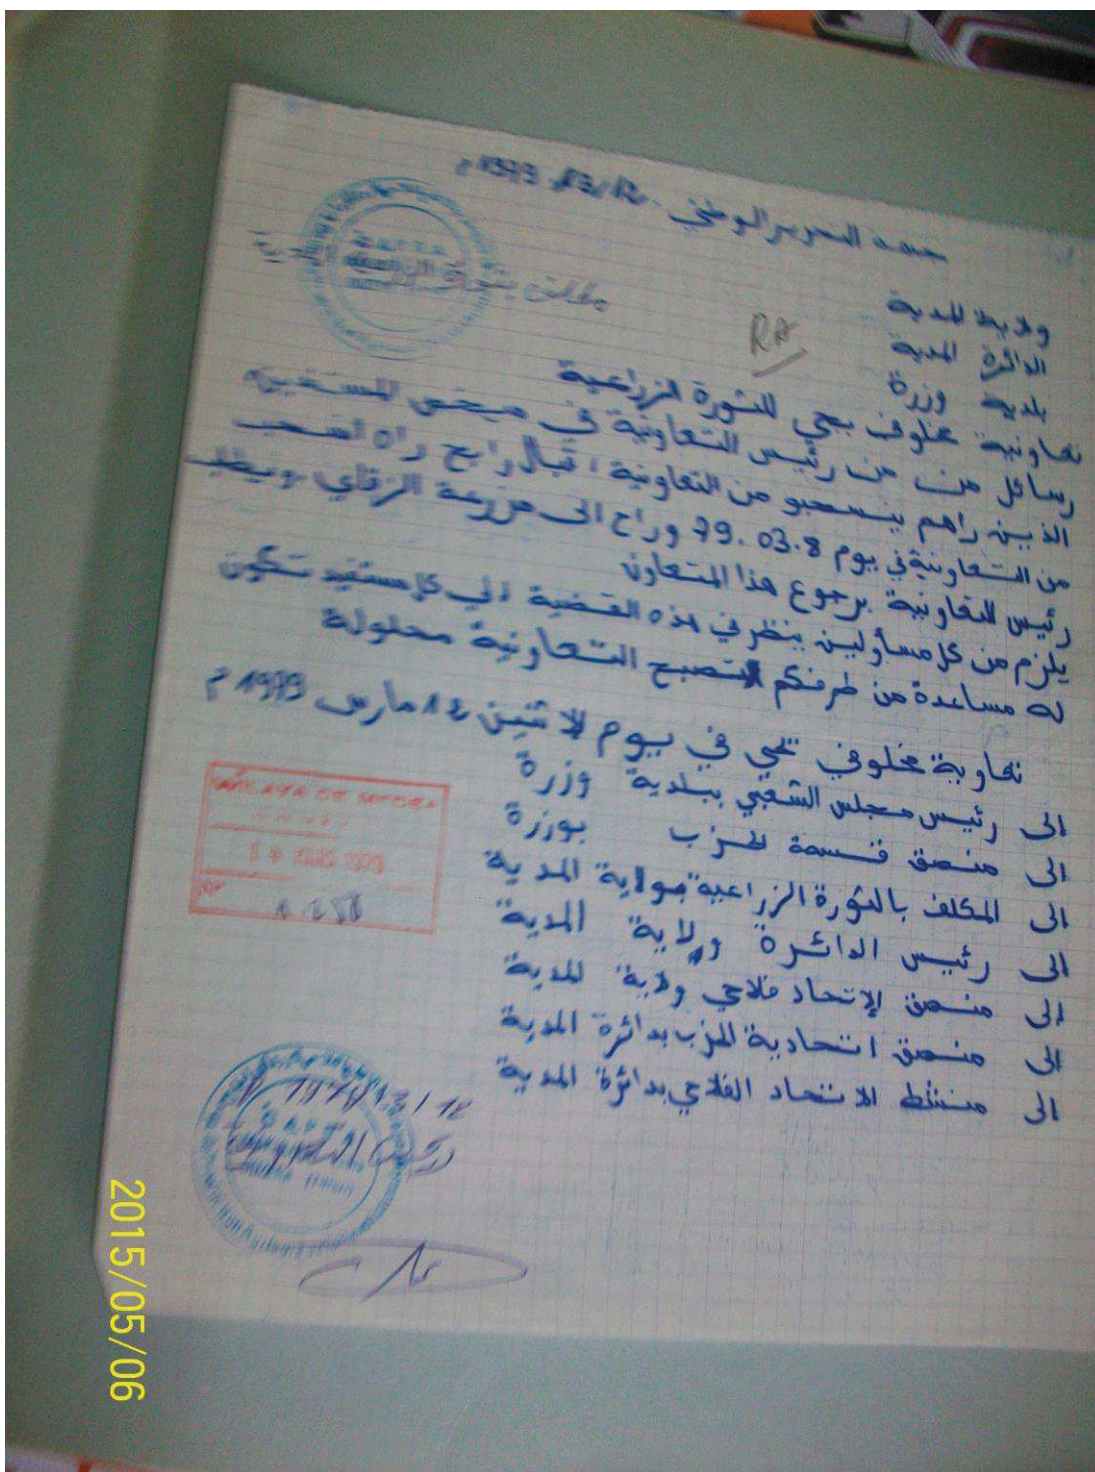 جبهة التحرير الوطني 12/03/1979 م
ولاية المدية
الدائرة المدية
بلدية وزرة
RA
تعاونية مخلوف يحي للثورة الزراعية
رسائل من من رئيس التعاونية في ميخص المستفيد
الذين راهم ينسحبو من التعاونية، قبال رابح راه انسحب
من التعاونية في يوم 79.03.8 وراح الى مزرعة الزقاي ويطلب
رئيس التعاونية برجوع هذا المتعاون
يلزم من كل مسأولين ينظر في هذه القضية الي كل مستفيد تكون
له مساعدة من طرفكم لتصبح التعاونية محلولة
تعاوية مخلوفي يحي في يوم الاثنين 12 مارس 1979 م
الى رئيس مجلس الشعبي ببلدية وزرة
الى منصق قسمة لحزب بوزرة
الى المكلف بالثورة الزراعية بولاية المدية
الى رئيس الدائرة ولاية المدية
الى منصق الإتحاد فلاحي ولاية المدية
الى منصق اتحادية الحزب بدائرة المدية
الى منشط الاتحاد الفلاحي بدائرة المدية
WILAYA DE MEDEA
1979
12
رئيس التعاونية
2015/05/06